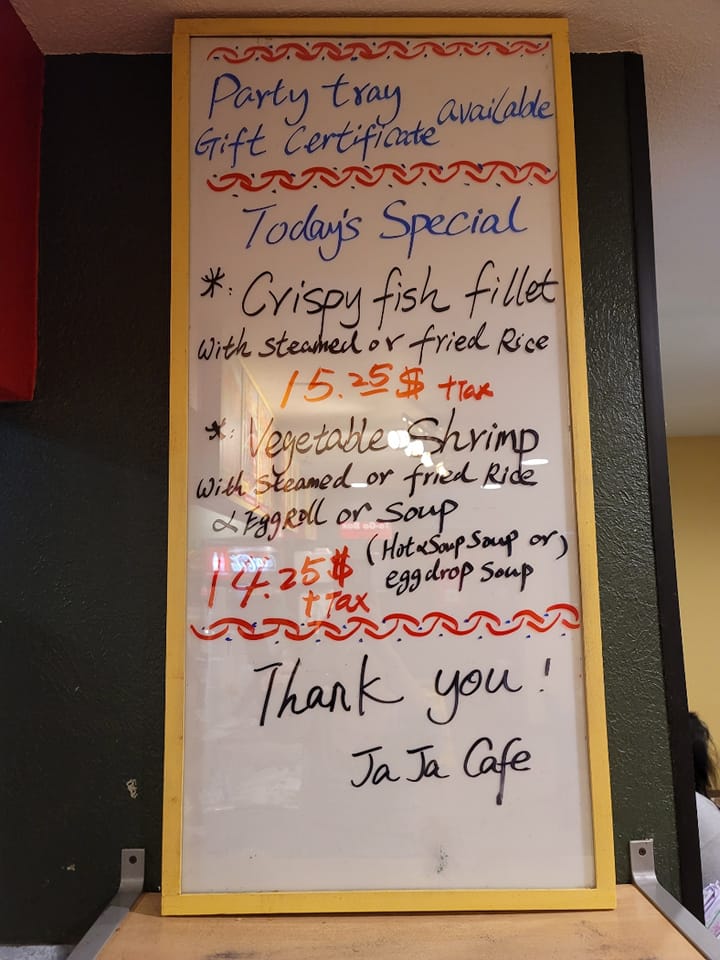 Party tray
Gift Certificate available
Today's Special
*: Crispy fish fillet
With Steamed or fried Rice
15.25$ +Tax
*: Vegetable Shrimp
With Steamed or fried Rice
& EggRoll or Soup
(Hot & Soup Soup or)
eggdrop Soup
14.25$
+Tax
Thank you!
Ja Ja Cafe